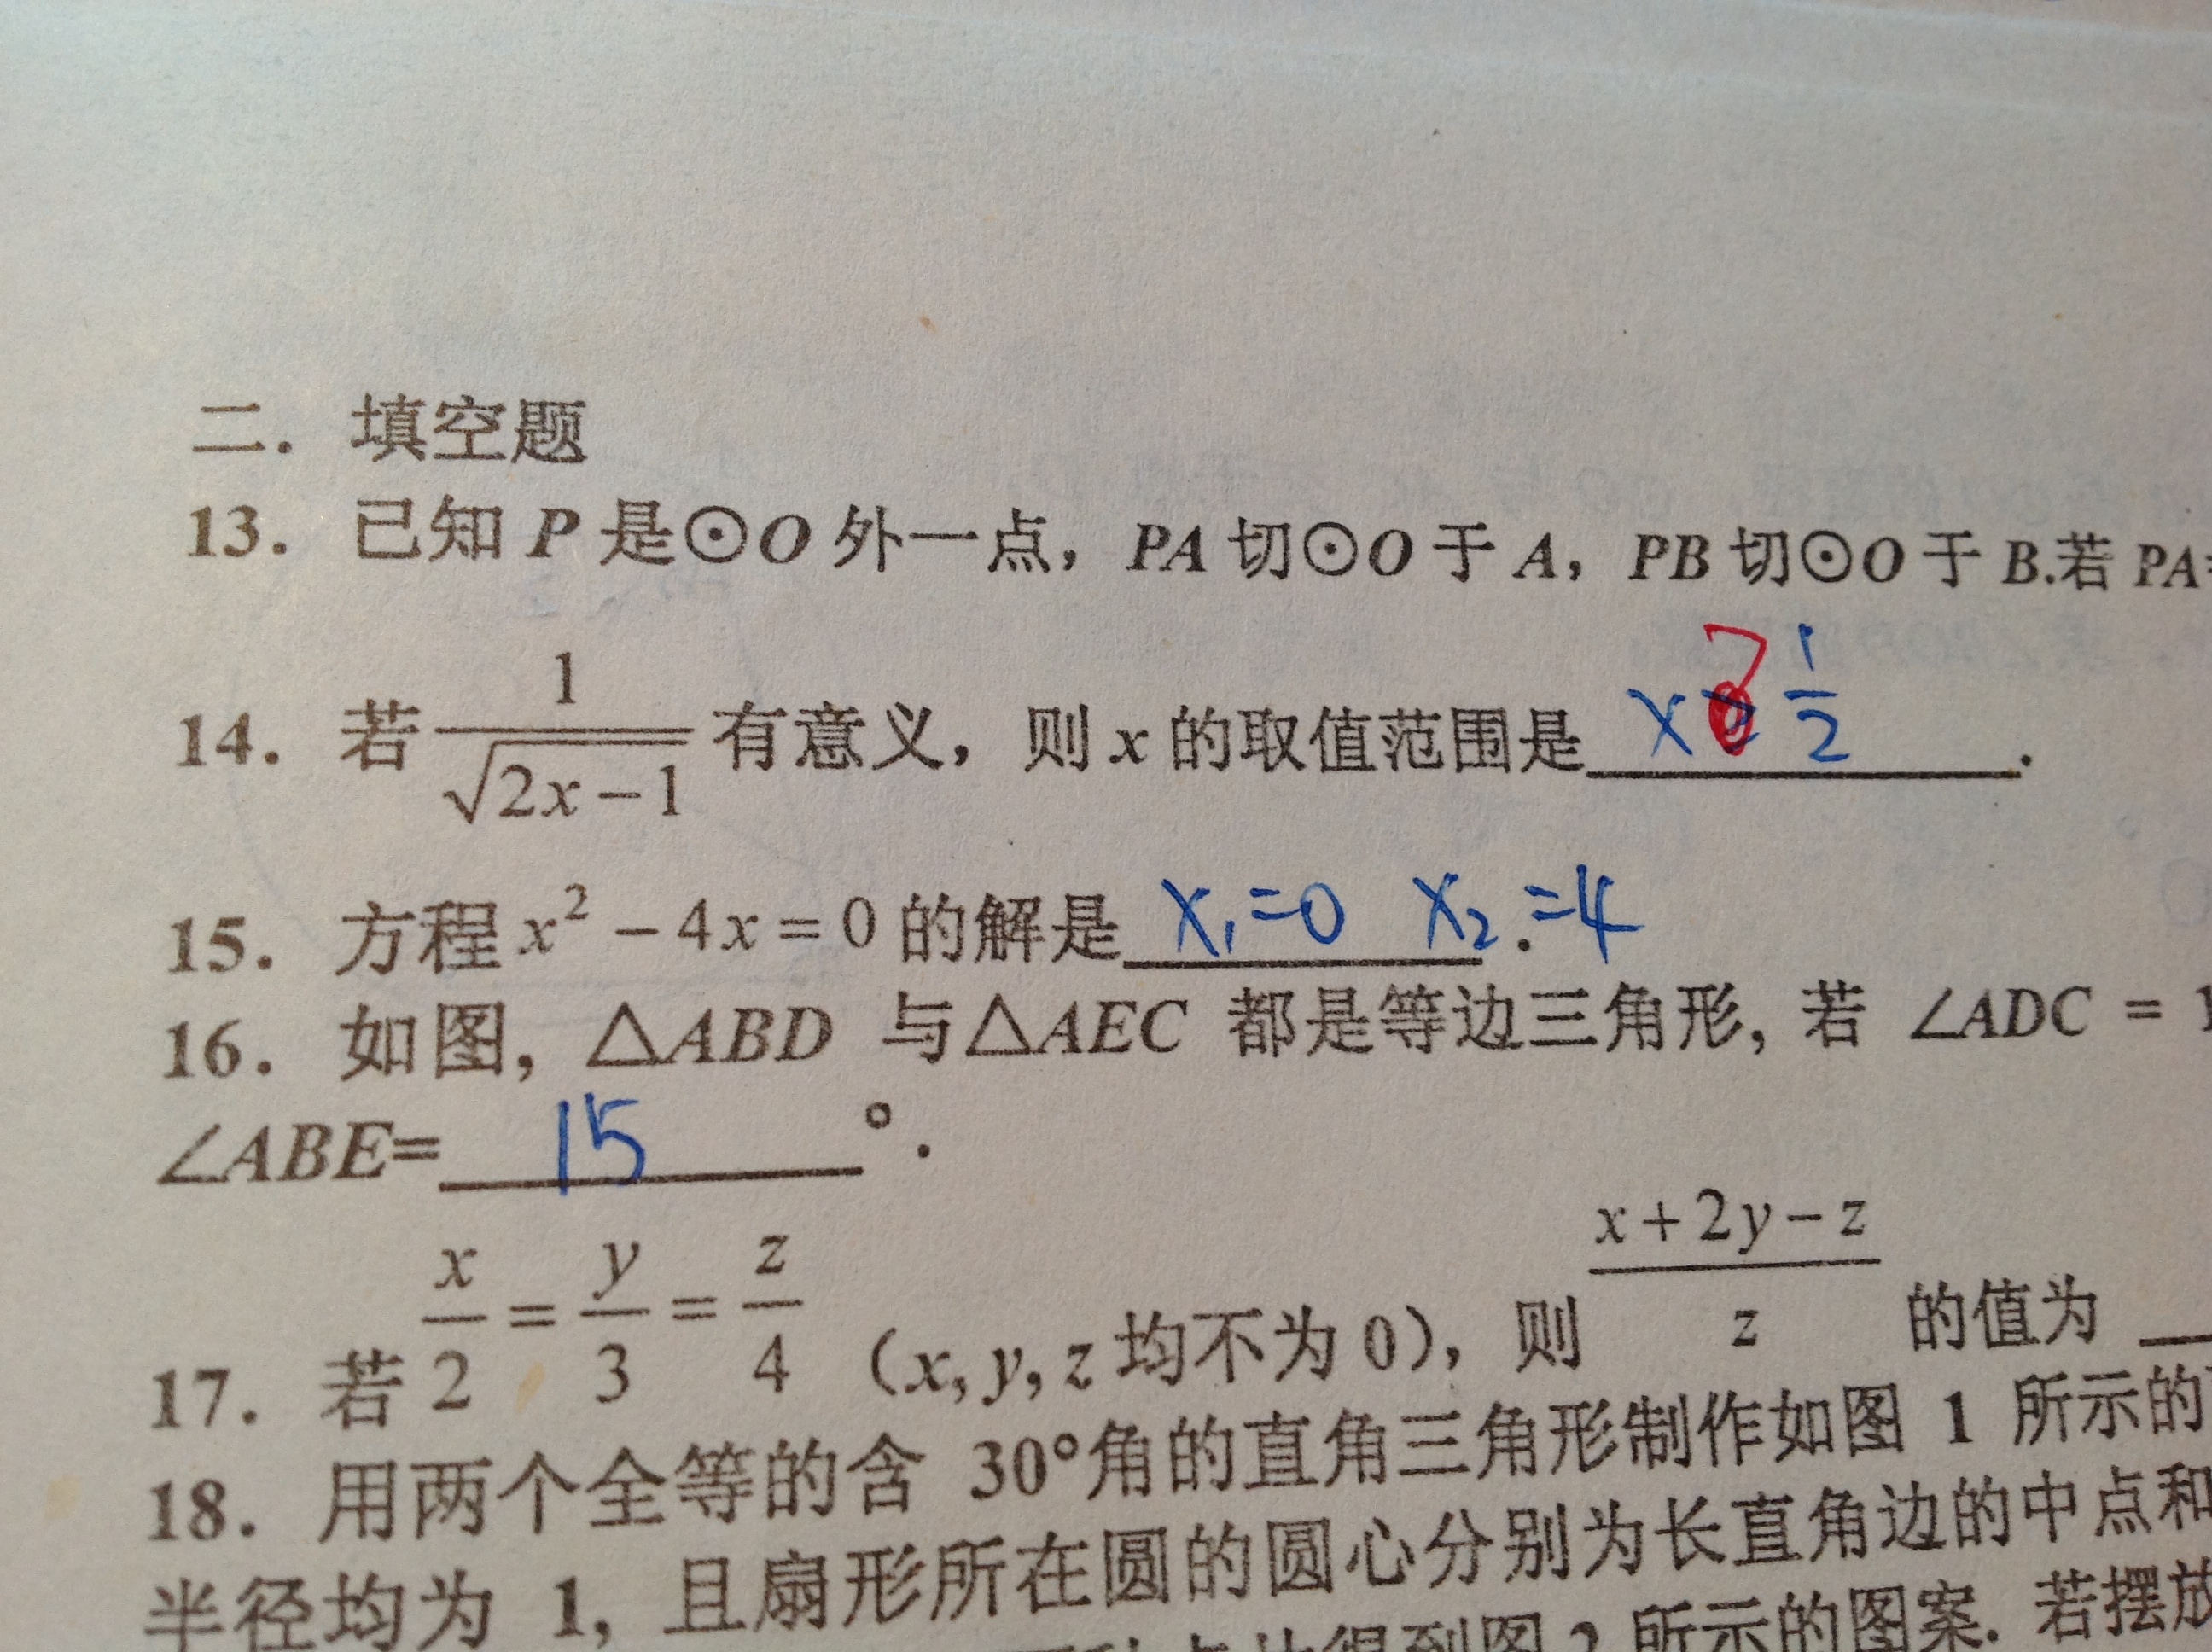 二. 填空题
13. 已知 P 是⊙O 外一点, PA 切⊙O 于 A, PB 切⊙O 于 B.若 PA
14. 若 1/√(2x-1) 有意义, 则 x 的取值范围是 x > 1/2 .
15. 方程 x² - 4x = 0 的解是 x₁=0 x₂.=4
16. 如图, △ABD 与△AEC 都是等边三角形, 若 ∠ADC = 1
∠ABE= 15 °.
17. 若 x/2 = y/3 = z/4 (x, y, z 均不为 0), 则 (x+2y-z)/z 的值为
18. 用两个全等的含 30°角的直角三角形制作如图 1 所示的
半径均为 1, 且扇形所在圆的圆心分别为长直角边的中点和
得到图 2 所示的图案. 若摆放